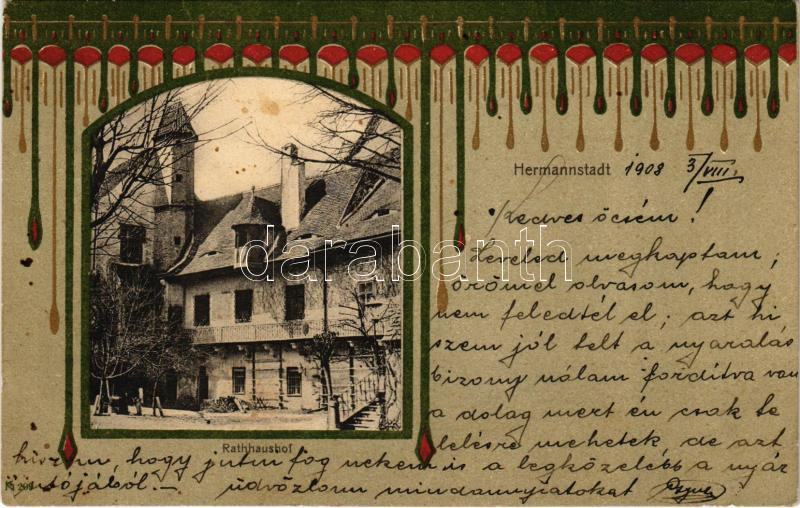 Hermannstadt 1908 3/VIII.
Kedves öcsém!
Leveled megkaptam;
örömel olvasom, hogy
nem feledtél el; azt hi
szem jól telt a nyaralás
bizony nálam fordítva van
a dolog mert én csak te
lelésre mehetek, de azt
Rathhaushof
hiszem, hogy jutni fog nekem is a legközelebb a nyár
utójából.— üdvözlöm mindannyiatokat
darabanth.com